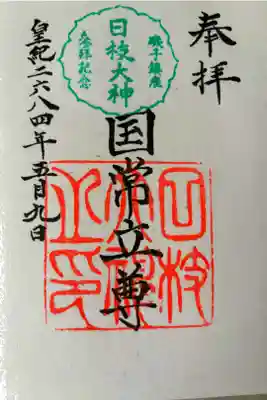 奉拝
磯子鎮座
日枝大神
参拝記念
国常立尊
皇紀二六八四年五月九日